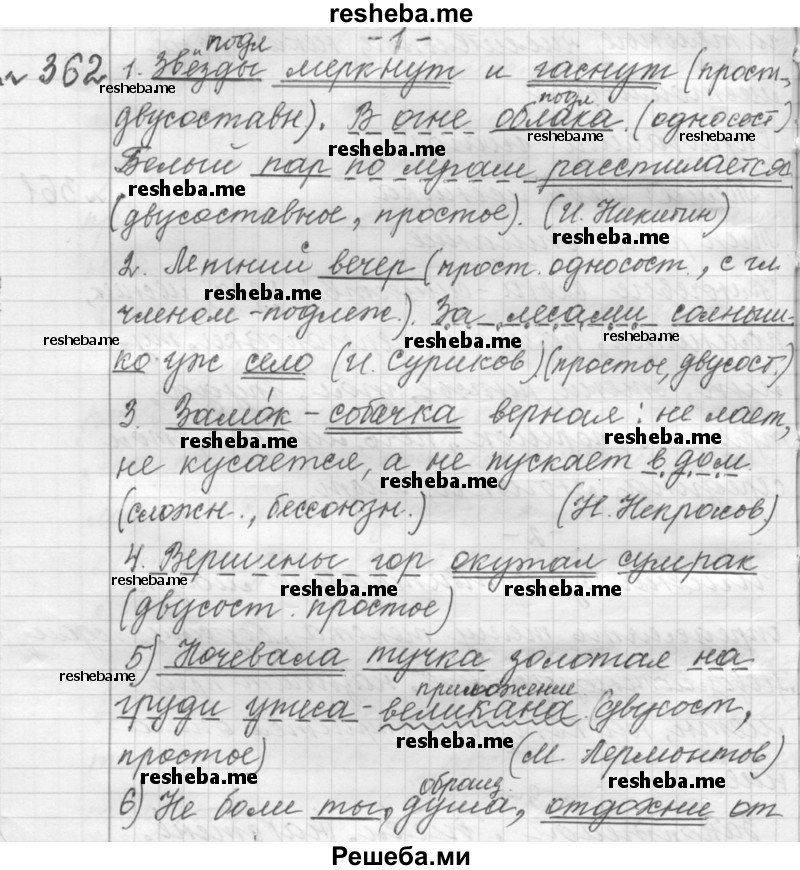 resheba.me
-1-
подл
№ 362 1. Звёзды меркнут и гаснут (прост.,
resheba.me
подл
двусоставн). В огне облака. (односост)
resheba.me resheba.me resheba.me
Белый пар по лугам расстилается
resheba.me
(двусоставное, простое). (И. Никитин)
resheba.me
2. Летний вечер (прост. односост., с гл
resheba.me
членом - подлеж.). За лесами солныш-
resheba.me resheba.me
ко уж село (И. Суриков) (простое, двусост.)
3. Замок - собачка верная: не лает,
resheba.me resheba.me
не кусается, а не пускает в дом
resheba.me
(сложн., бессоюзн.) (Н. Некрасов)
4. Вершины гор окутал сумрак
resheba.me resheba.me resheba.me
(двусост. простое)
5) Ночевала тучка золотая на
resheba.me
приложение
груди утеса - великана (двусост,
resheba.me
простое) (М. Лермонтов)
resheba.me resheba.me
обращ.
6) Не боли ты, душа, отдохни от
Решеба.ми